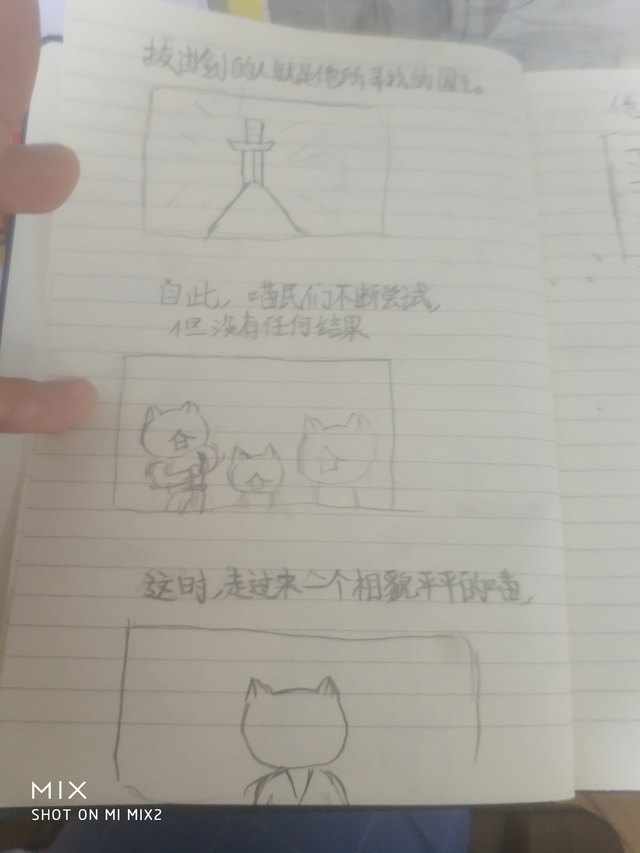 拔出剑的人就是他所寻找的国王。
自此，喵民们不断尝试，
但没有任何结果
这时，走过来一个相貌平平的喵，
他
MIX
SHOT ON MI MIX2